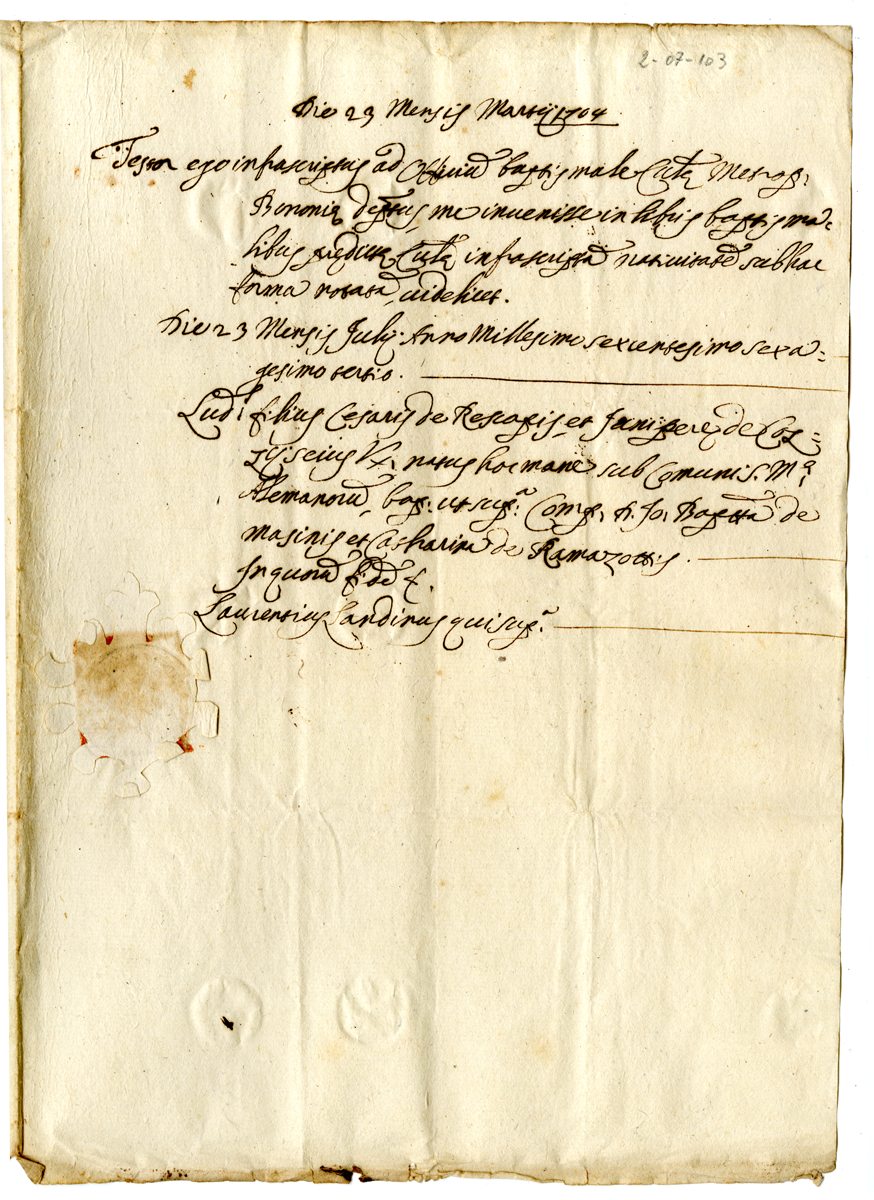 2-07-103
Die 23 Mensis Martij 1704
Testor ego infrascriptus ad Officiũ baptismale Cath. Metrop:
Bononię deptus, me invenisse in libris baptisma=
libus predictę infrascriptã nativitatẽ sub hac
forma notatã, videlicet.
Die 23 Mensis Julij Anno Millesimo sexcentesimo sexa=
gesimo tertio.
filius Cesaris de et Junipere de
eius Vx. natus hac mane sub Comuni S. Mª
Alemanorũ, bap: ut supª: Comp: D. Jo: Baptta de
Masinis et Catharina de Ramazottis.
In quorũ fidẽ &.
Laurentius Landinus qui supª.